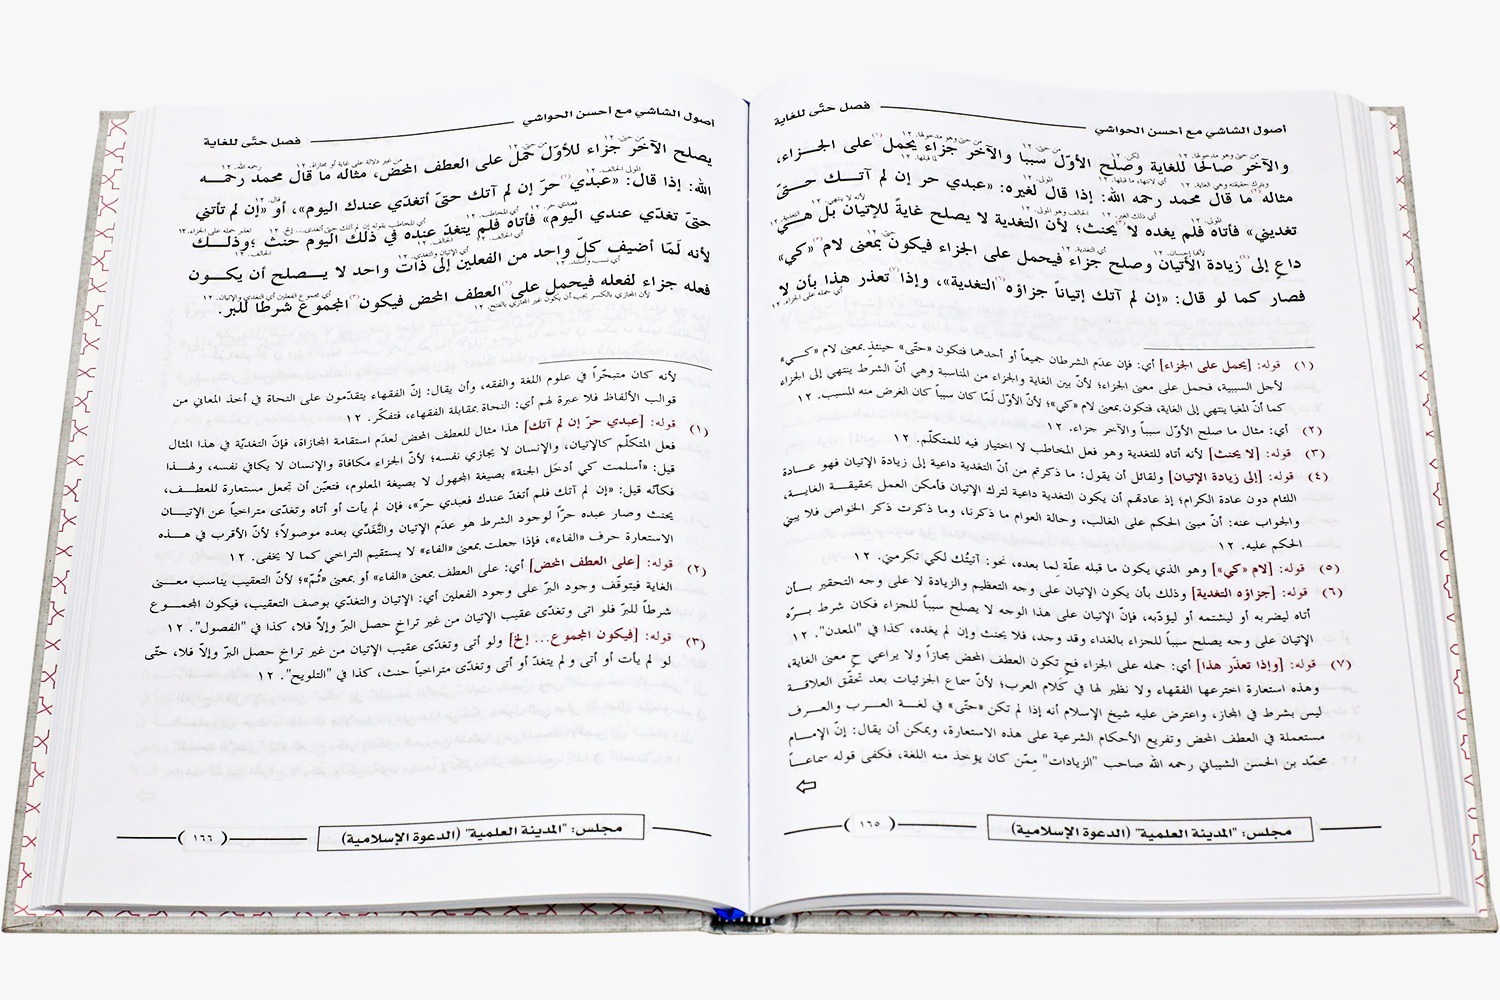 أصول الشاشي مع أحسن الحواشي فصل حتّى للغاية
والآخر صالحًا للغاية وصلح الأوّل سببا والآخر جزاء يحمل(١) على الجـــزاء،
مثاله(٢) ما قال محمد رحمه الله: إذا قال لغيره: «عبدي حر إن لم آتـــك حـــتّى
تغديني» فأتاه فلم يغده لا(٣) يحنث؛ لأن التغدية لا يصلح غايةً للإتيان بل هـــي
داع إلى(٤) زيادة الأتيان وصلح جزاء فيحمل على الجزاء فيكون بمعنى لام(٥) «كي»
فصار كما لو قال: «إن لم آتك إتياناً جزاؤه(٦) التغدية»، وإذا(٧) تعذر هذا بأن لا
(١) قوله: [يحمل على الجزاء] أي: فإن عدَم الشرطان جميعاً أو أحدهما فتكون «حتّى» حينئذٍ بمعنى لام «كـــي»
لأجل السببية، فحمل على معنى الجزاء؛ لأنّ بين الغاية والجزاء من المناسبة وهي أنّ الشرط ينتهي إلى الجزاء
كما أنّ المغيا ينتهي إلى الغاية، فتكون بمعنى لام «كي»؛ لأنّ الأوّل لَمّا كان سبباً كان الغرض منه المسبب. ١٢
(٢) أي: مثال ما صلح الأوّل سبباً والآخر جزاء. ١٢
(٣) قوله: [لا يحنث] لأنه أتاه للتغدية وهو فعل المخاطب لا اختيار فيه للمتكلّم. ١٢
(٤) قوله: [إلى زيادة الإتيان] ولقائل أن يقول: ما ذكرتم من أنّ التغدية داعية إلى زيادة الإتيان فهو عـــادة
اللئام دون عادة الكرام؛ إذ عادتهم أن يكون التغدية داعية لترك الإتيان فأمكن العمل بحقيقـــة الغايـــة،
والجواب عنه: أنّ مبنى الحكم على الغالب، وحالة العوام ما ذكرنا، وما ذكرت ذكر الخواص فلا يبنى
الحكم عليه. ١٢
(٥) قوله: [لام «كي»] وهو الذي يكون ما قبله علّة لِما بعده، نحو: آتيتُك لكي تكرمني. ١٢
(٦) قوله: [جزاؤه التغدية] وذلك بأن يكون الإتيان على وجه التعظيم والزيادة لا على وجه التحقير بـــأن
أتاه ليضربه أو ليشتمه أو ليؤذيه، فإنّ الإتيان على هذا الوجه لا يصلح سبباً للجزاء فكان شرط بـــرّه
الإتيان على وجه يصلح سبباً للجزاء بالغداء وقد وجد، فلا يحنث وإن لم يغده، كذا في "المعدن". ١٢
(٧) قوله: [وإذا تعذّر هذا] أي: حمله على الجزاء فح تكون العطف المحض مجازاً ولا يراعي ح معنى الغاية،
وهذه استعارة اخترعها الفقهاء ولا نظير لها في كلام العرب؛ لأنّ سماع الجزئيات بعد تحقّق العلاقـــة
ليس بشرط في المجاز، واعترض عليه شيخ الإسلام أنه إذا لم تكن «حتّى» في لغـــة العـــرب والعـــرف
مستعملة في العطف المحض وتفريع الأحكام الشرعية على هذه الاستعارة، ويمكن أن يقال: إنّ الإمـــام
محمّد بن الحسن الشيباني رحمه الله صاحب "الزيادات" مِمّن كان يؤخذ منه اللغة، فكفى قوله سماعـــاً
مجلس: "المدينة العلمية" (الدعوة الإسلامية) (١٦٥)
أصول الشاشي مع أحسن الحواشي فصل حتّى للغاية
يصلح الآخر جزاء للأوّل حُمل على العطف المحض، مثاله ما قال محمد رحمـــه
الله: إذا قال: «عبدي(١) حرّ إن لم آتك حتىّ أتغدّي عندك اليوم»، أو «إن لم تأتني
حتىّ تغدّي عندي اليوم» فأتاه فلم يتغدّ عنده في ذلك اليوم حنث؛ وذلـــك
لأنه لَمّا أضيف كلّ واحد من الفعلين إلى ذات واحد لا يـــصلح أن يكـــون
فعله جزاء لفعله فيحمل على(٢) العطف المحض فيكون(٣) المجموع شرطًا للبر.
لأنه كان متبحّراً في علوم اللغة والفقه، وأن يقال: إنّ الفقهاء يتقدّمون على النحاة في أخذ المعاني من
قوالب الألفاظ فلا عبرة لهم أي: النحاة بمقابلة الفقهاء، فتفكّر. ١٢
(١) قوله: [عبدي حرّ إن لم آتك] هذا مثال للعطف المحض لعدم استقامة المجازاة، فإنّ التغديّة في هذا المثال
فعل المتكلّم كالإتيان، والإنسان لا يجازي نفسه؛ لأنّ الجزاء مكافاة والإنسان لا يكافي نفسه، ولهـــذا
قيل: «أسلمت كي أدخَل الجنة» بصيغة المجهول لا بصيغة المعلوم، فتعيّن أن تجعل مستعارة للعطـــف،
فكأنّه قيل: «إن لم آتك فلم أتغدّ عندك فعبدي حرّ»، فإن لم يأت أو أتاه وتغدّى متراخياً عن الإتيـــان
يحنث وصار عبده حرّاً لوجود الشرط هو عدَم الإتيان والتَّغَدِّي بعده موصولاً؛ لأنّ الأقرب في هـــذه
الاستعارة حرف «الفاء»، فإذا جعلت بمعنى «الفاء» لا يستقيم التراخي كما لا يخفى. ١٢
(٢) قوله: [على العطف المحض] أي: على العطف بمعنى «الفاء» أو بمعنى «ثُمّ»؛ لأنّ التعقيب يناسب معـــنى
الغاية فيتوقّف وجود البرّ على وجود الفعلين أي: الإتيان والتغدّي بوصف التعقيب، فيكون المجمـــوع
شرطاً للبرّ فلو اتى وتغدّى عقيب الإتيان من غير تراخ حصل البرّ وإلاّ فلا، كذا في "الفصول". ١٢
(٣) قوله: [فيكون المجموع... إلخ] ولو أتى وتغدّى عقيب الإتيان من غير تراخٍ حصل البرّ وإلاّ فلا، حتّى
لو لم يأت أو أتى ولم يتغدّ أو أتى وتغدّى متراخياً حنث، كذا في "التلويح". ١٢
مجلس: "المدينة العلمية" (الدعوة الإسلامية) (١٦٦)